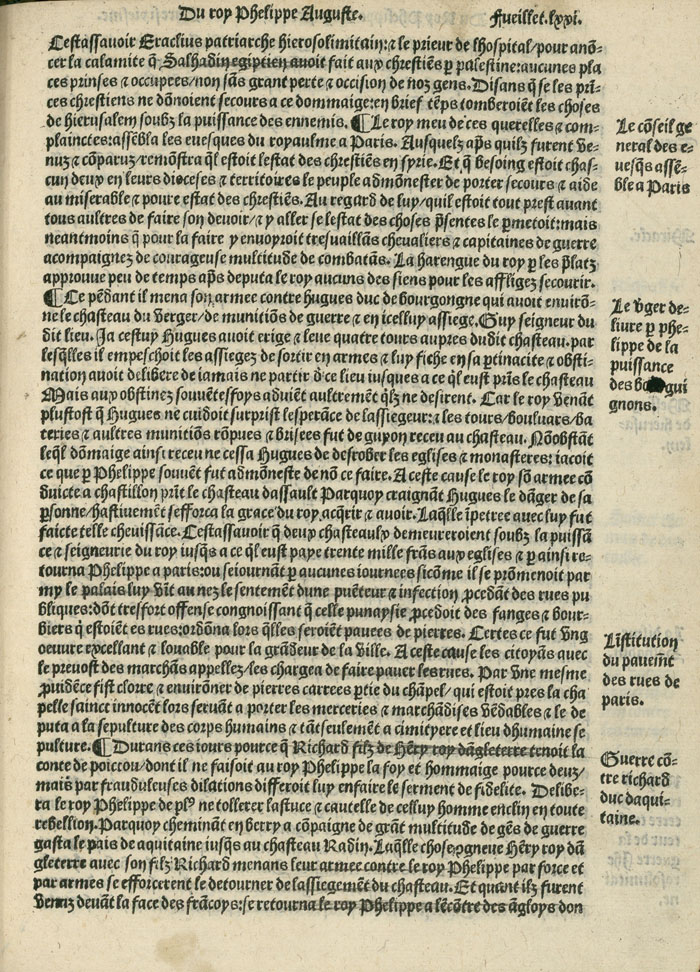 Du roy Phelippe Auguste.
Fueillet.lxxi.
Cestassauoir Eraclius patriarche hierosolimitain:⁊ le prieur de lhospital/pour anõ-
cer la calamite q̃ Salhadin egiptien auoit fait aux chrestiẽs ꝑ palestine:aucunes pla
ces prinses ⁊ occupees/non sãs grant perte ⁊ occision de noz gens. Disans q̃ se les prĩ-
ces chrestiens ne dõnoient secours a ce dommaige:en brief tẽps tomberoiẽt les choses
de hierusalem soubz la puissance des ennemis. ¶ Le roy meu de ces querelles ⁊ com-
plainctes:assẽbla les euesques du royaulme a Paris. Ausquelz apṡ quilz furent ve-
nuz ⁊ cõparuz/remõstra q̃l estoit lestat des chrestiẽs en syrie. Et q̃ besoing estoit chas-
cun deux en leurs dioceses ⁊ territoires le peuple admõnester de porter secours ⁊ aide
au miserable ⁊ poure estat des chrestiẽs. Au regard de luy/quil estoit tout prest auant
tous aultres de faire son deuoir/⁊ y aller se lestat des choses p̃sentes le ꝑmetoit:mais
neantmoins q̃ pour la faire y enuoyroit tresuaillãs cheualiers ⁊ capitaines de guerre
acompaignez de courageuse multitude de combatãs. La harengue du roy ꝑ les p̃latz
approuue peu de temps apṡ deputa le roy aucuns des siens pour les affligez secourir.
¶ Ce pẽdant il mena son armee contre Hugues duc de bourgongne qui auoit enuirõ-
ne le chasteau du Verger/de munitiõs de guerre ⁊ en icelluy assiege. Guy seigneur du
dit lieu. Ja cestuy Hugues auoit erige ⁊ leue quatre tours aupres dudit chasteau. par
lesq̃lles il empeschoit les assiegez de sortir en armes ⁊ luy fiche en sa ꝑtinacite ⁊ obsti-
nation auoit delibere de iamais ne partir d̃ ce lieu iusques a ce q̃l eust prĩs le chasteau
Mais aux obstinez souuẽtesfoys aduiẽt aultremẽt q̃lz ne desirent. Car le roy venãt
plustost q̃ Hugues ne cuidoit surprist lesperãce de lassiegeur:⁊ les tours/bouluars/ba
teries ⁊ aultres munitiõs rõpues ⁊ brisees fut de guyon receu au chasteau. Nõobstãt
leq̃l dõmaige ainsi receu ne cessa Hugues de desrober les eglises ⁊ monasteres: iacoit
ce que ꝑ Phelippe souuẽt fut admõneste de nõ ce faire. A ceste cause le roy sõ armee cõ
duicte a chastillon prĩt le chasteau dassault Parquoy craignãt Hugues le dãger de sa
ꝑsonne/hastiuemẽt sefforca la grace du roy acq̃rir ⁊ auoir. Laq̃lle ĩpetree auec luy fut
faicte telle cheuissãce. Cestassauoir q̃ deux chasteaulx demeureroient soubz la puissã
ce ⁊ seigneurie du roy iusq̃s a ce q̃l eust paye trente mille frãs aux eglises ⁊ ꝑ ainsi re-
tourna Phelippe a paris:ou seiournãt ꝑ aucunes iournees sicõme il se promenoit par
my le palais luy vĩt au nez le sentemẽt dune puẽteur ⁊ infection ꝓcedãt des rues pu
bliques:dõt tresfort offense congnoissant q̃ celle punaysie ꝓcedoit des fanges ⁊ bour-
biers q̃ estoiẽt es rues:ordõna lors q̃lles seroiẽt pauees de pierres. Certes ce fut vng
oeuure excellant ⁊ louable pour la grãdeur de la ville. A ceste cause les citoyãs auec
le preuost des marchãs appellez/les chargea de faire pauer les rues. Par vne mesme
ꝓuidẽce fist clorre ⁊ enuirõner de pierres carrees ꝑtie du chãpel/qui estoit pres la cha
pelle sainct innocẽt lors seruãt a porter les merceries ⁊ marchãdises vẽdables ⁊ le de
puta a la sepulture des corps humains ⁊ tãtseulemẽt a cimityere et lieu dhumaine se
pulture. ¶ Durans ces iours pource q̃ Richard filz de Hẽry roy dãgleterre tenoit la
conte de poictou/dont il ne faisoit au roy Phelippe la foy et hommaige pource deux/
mais ꝑar frauduleuses dilations differoit luy en faire le serment de fidelite. Delibe-
ra le roy Phelippe de plꝰ ne tollerer lastuce ⁊ cautelle de celluy homme enclin en toute
rebellion. Parquoy cheminãt en berry a cõpaigne de grãt multitude de gẽs de guerre
gasta le pais de aquitaine iusq̃s au chasteau Radin. Laq̃lle chose ꝯgneue Hẽry roy dã
gleterre auec son filz Richard menans leur armee contre le roy Phelippe par force et
par armes se efforcerent le detourner de lassiegemẽt du chasteau. Et quant ilz furent
venuz deuãt la face des frãcoys:se retourna le roy Phelippe a lẽcõtre des ãgloys don
Le cõseil ge
neral des e-
uesq̃s assẽ-
ble a Paris
Le v̾ger de-
liure ꝑ phe-
lippe de la
puissance
des bo gui
gnons.
Lĩstitution
du pauemẽt
des rues de
paris.
Guerre cõ-
tre richard
duc daqui-
taine.